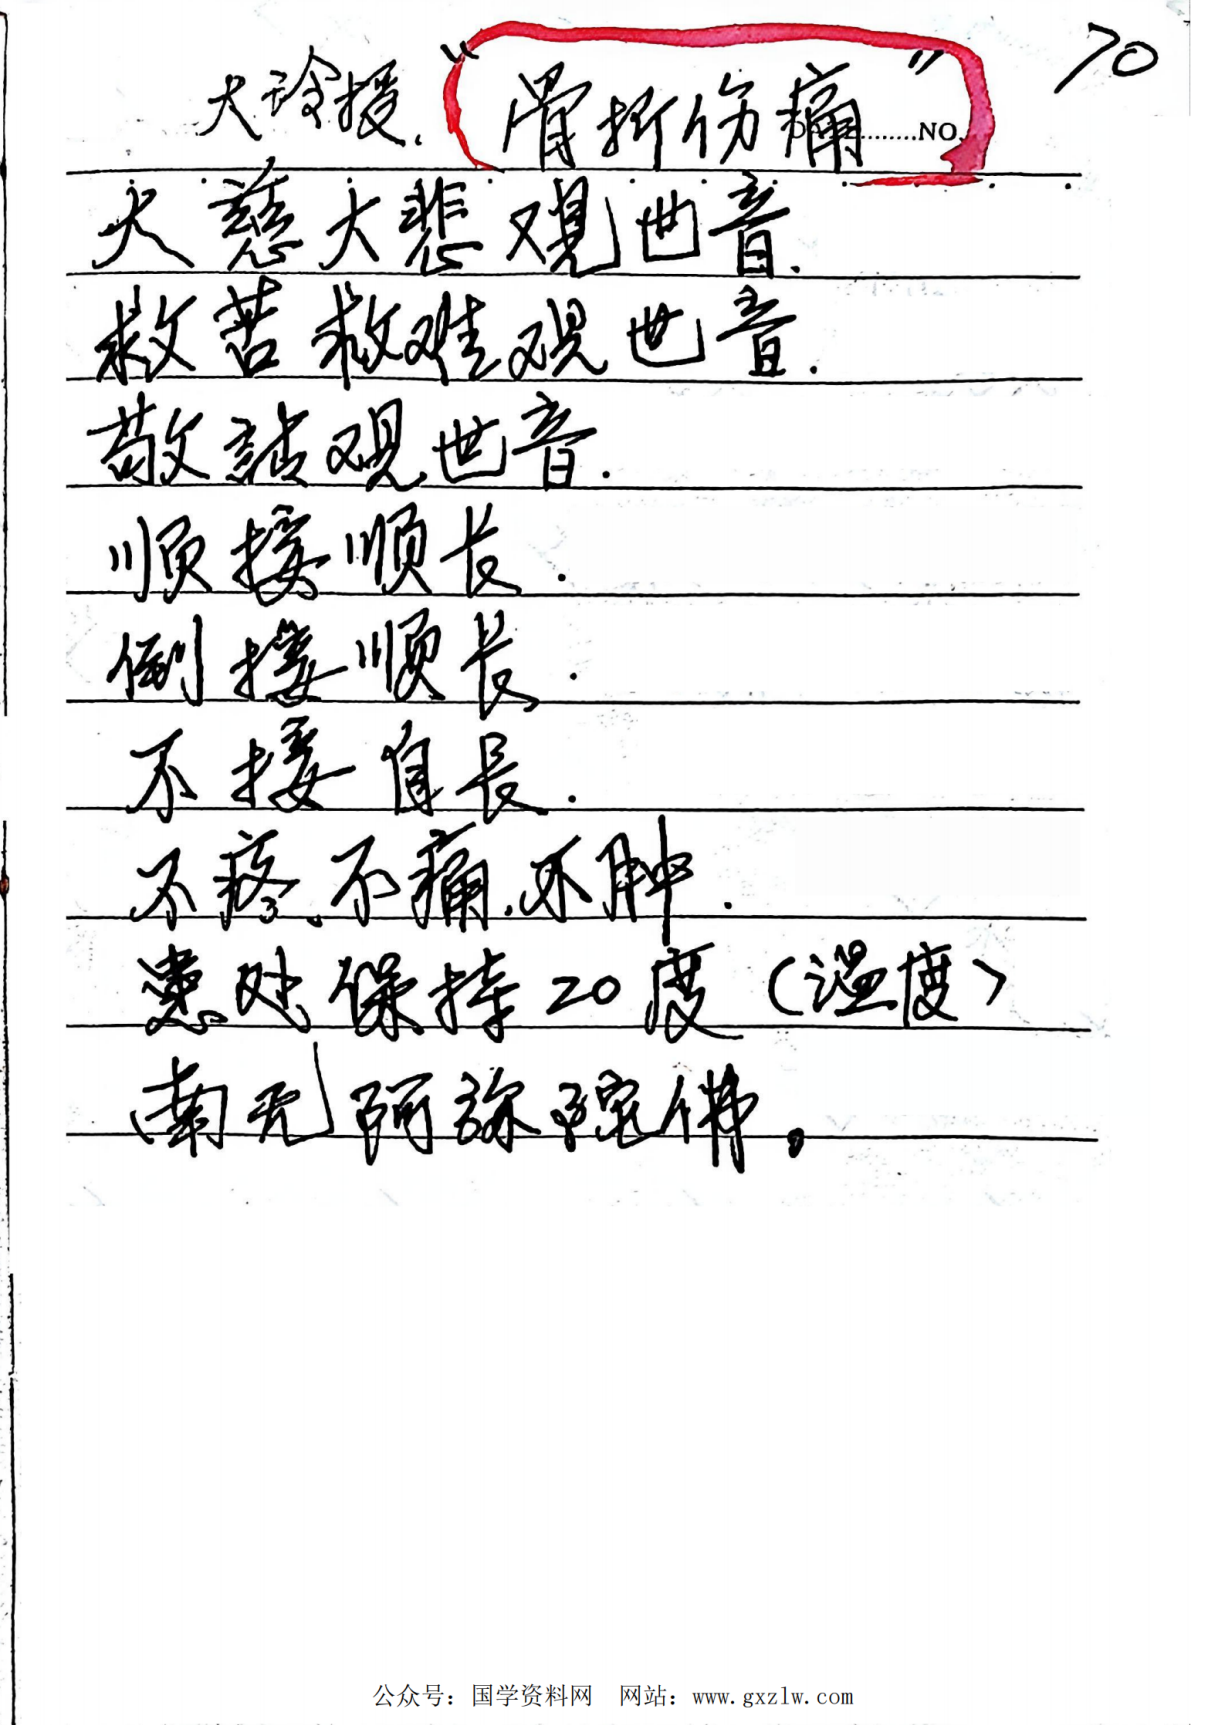 70
大玲授.“骨折伤痛”
DATE........NO.
大慈大悲观世音.
救苦救难观世音.
敬請观世音.
顺接顺长.
倒接顺长.
不接自长.
不疼、不痛、不肿.
患处保持20度（温度）
南无阿弥陀佛。
公众号：国学资料网 网站：www.gxzlw.com